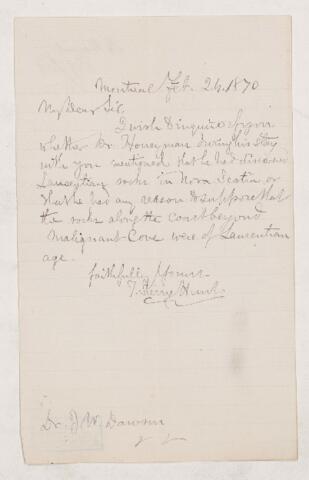 Montreal Feb. 24. 1870
My Dear Sir
I wish to inquire of you
whether Dr Honeyman during his stay
with you mentioned that he had discovered
Laurentian rocks in Nova Scotia or
that he had any reason to suppose that
the rocks along the coast beyond
Malignant Cove were of Laurentian
age.
faithfully Yours
T. Sterry Hunt
Dr. J W. Dawson